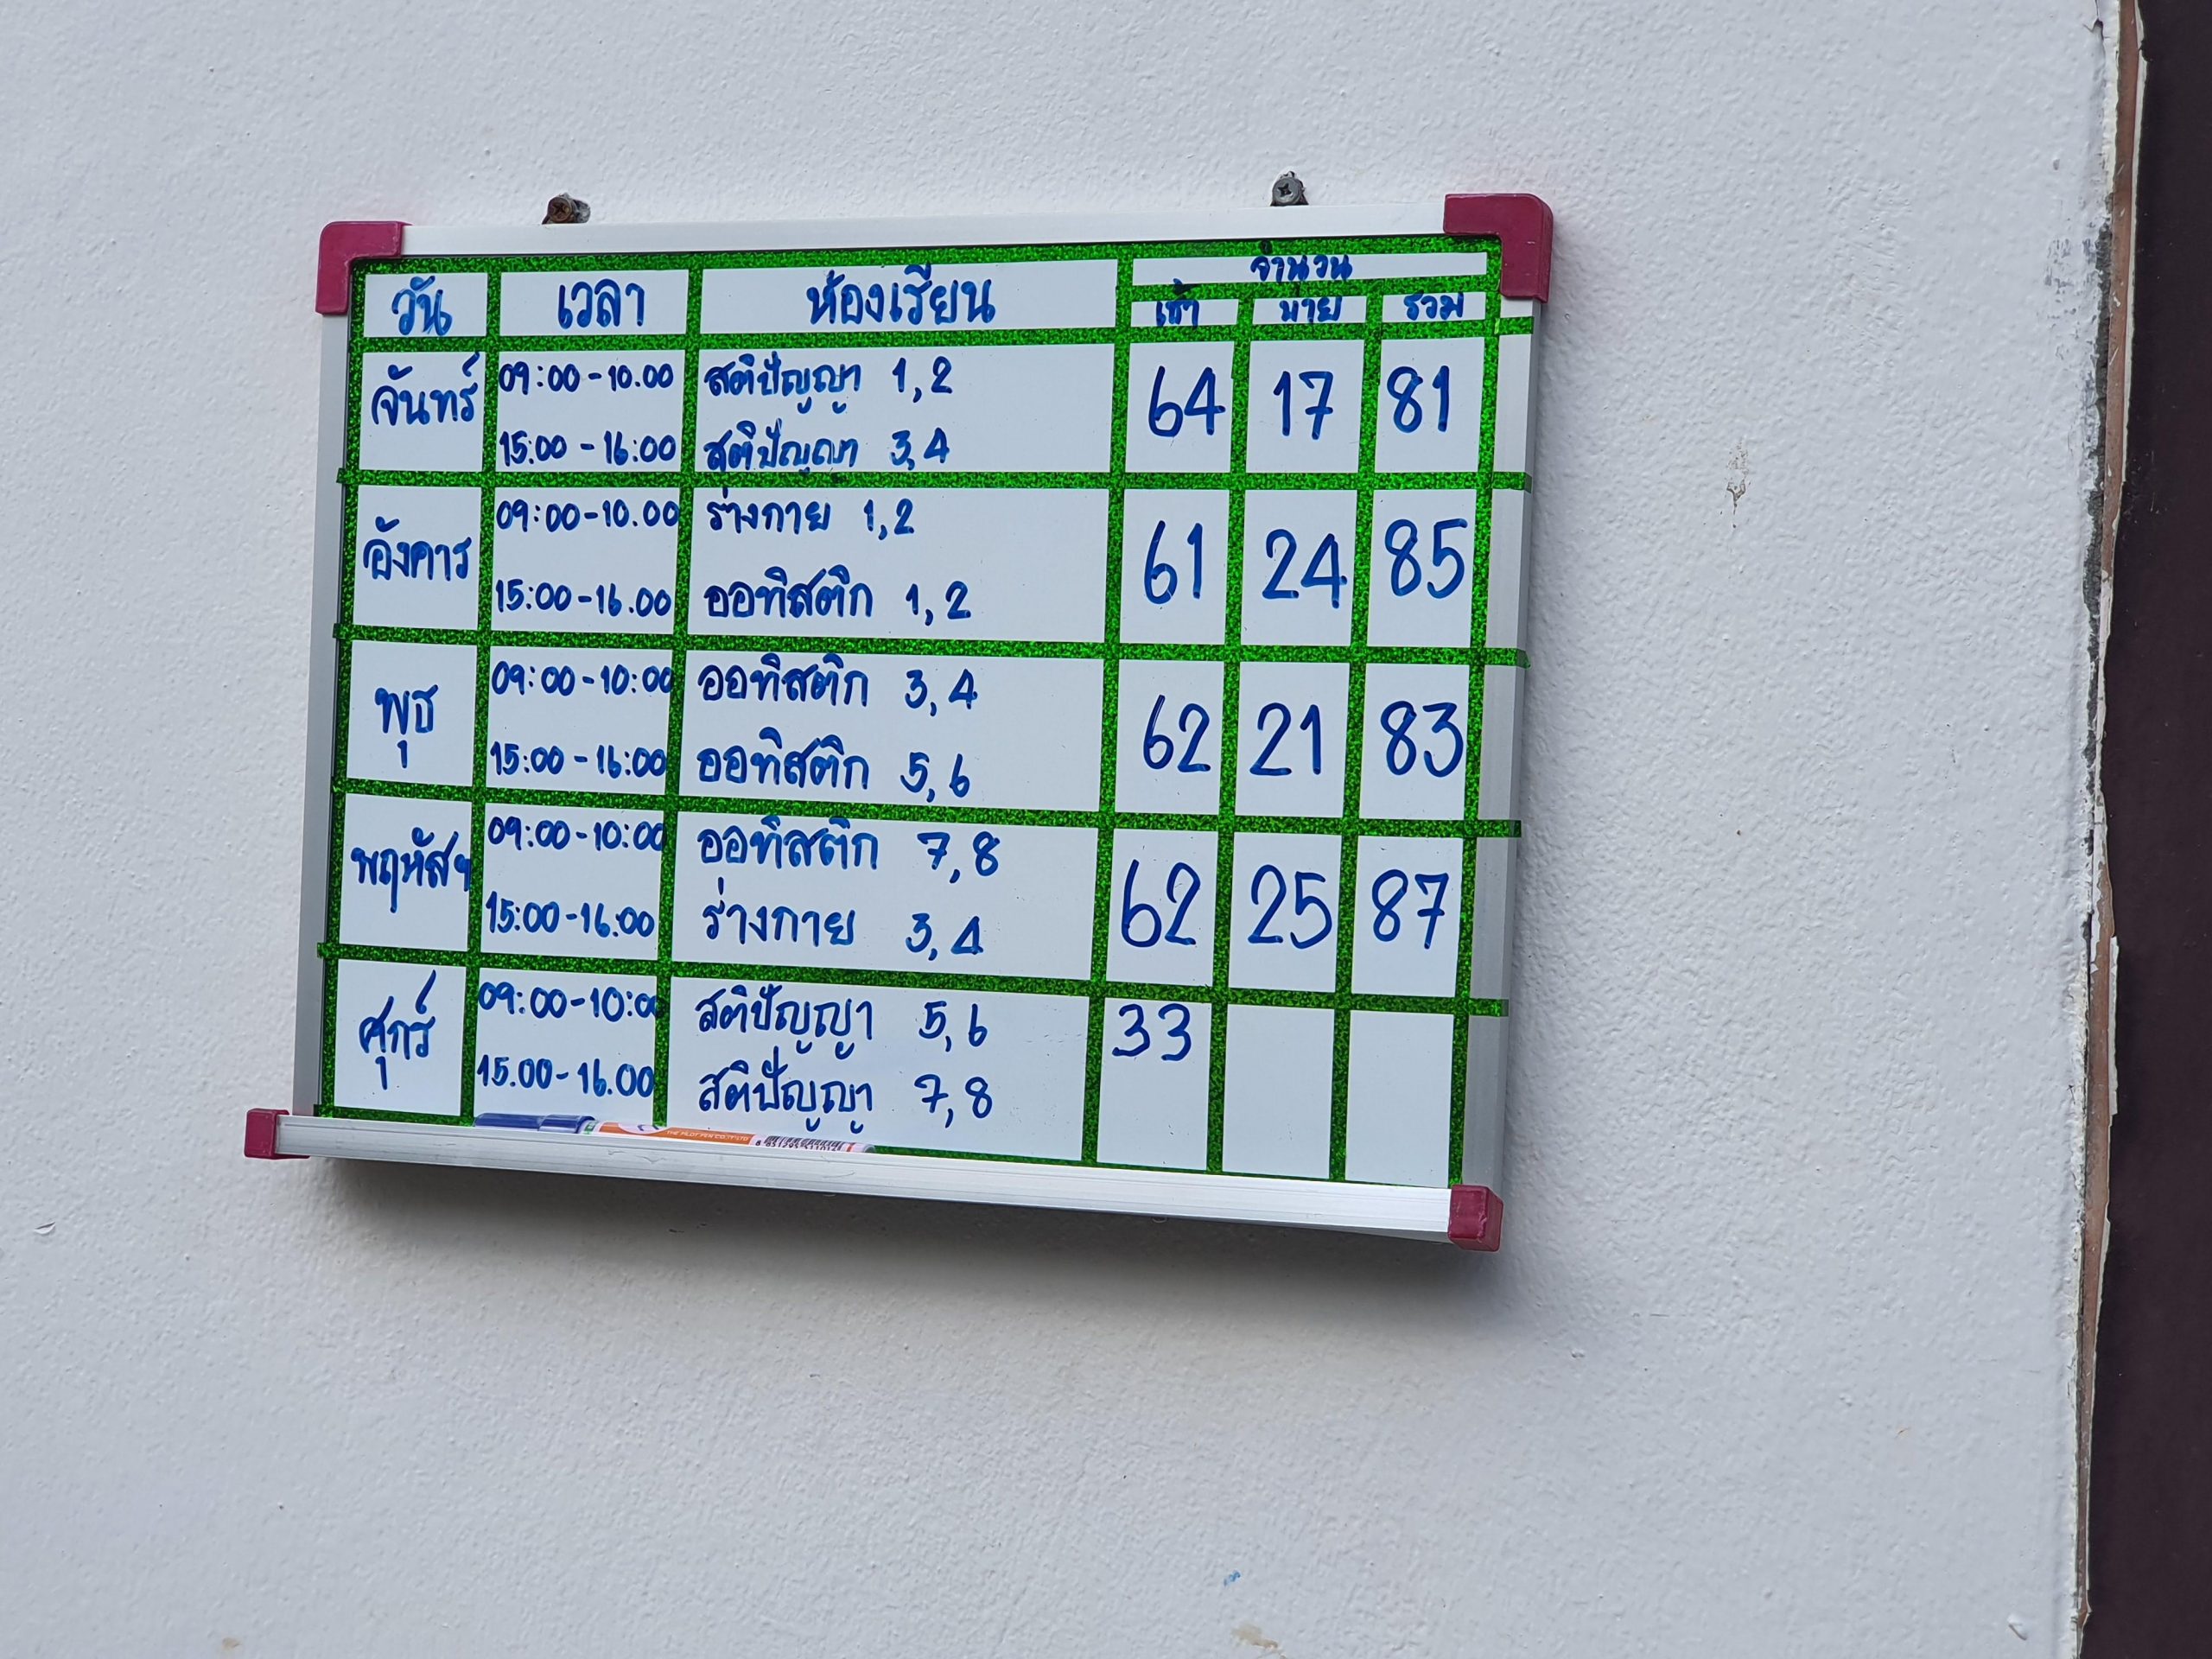 วัน เวลา ห้องเรียน จำนวน
เช้า บ่าย รวม
จันทร์ 09:00-10.00 สติปัญญา 1,2 64 17 81
15:00-16:00 สติปัญญา 3,4
อังคาร 09:00-10.00 ร่างกาย 1,2 61 24 85
15:00-16.00 ออทิสติก 1,2
พุธ 09:00-10:00 ออทิสติก 3,4 62 21 83
15:00-16:00 ออทิสติก 5,6
พฤหัสฯ 09:00-10:00 ออทิสติก 7,8 62 25 87
15:00-16.00 ร่างกาย 3,4
ศุกร์ 09:00-10:00 สติปัญญา 5,6 33
15.00-16.00 สติปัญญา 7,8
THE PILOT PEN CO.,LTD